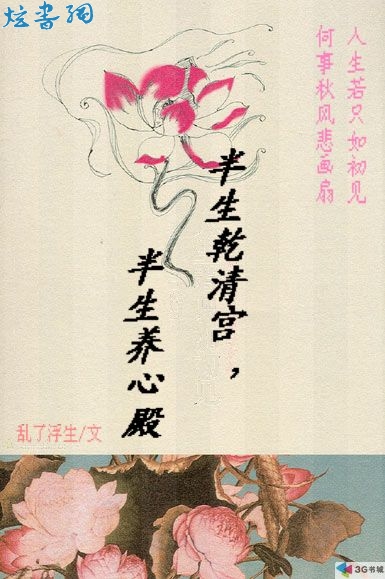 炫书网
人生若只如初见
何事秋风悲画扇
半生乾清宫，
半生养心殿
乱了浮生/文
3G书城